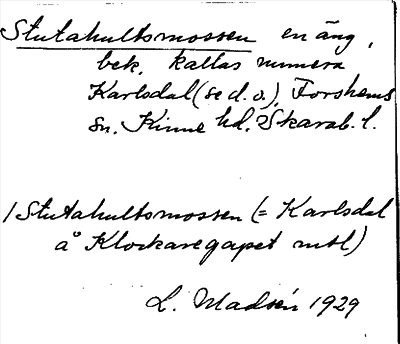 Stutahultsmossen en äng,
bek. kallas numera
Karlsdal (se d. o.), Forshems
sn. Kinne hd. Skarab. l.
/Stutahultsmossen (= Karlsdal
å Klockaregapet mtl)
L. Madsén 1929